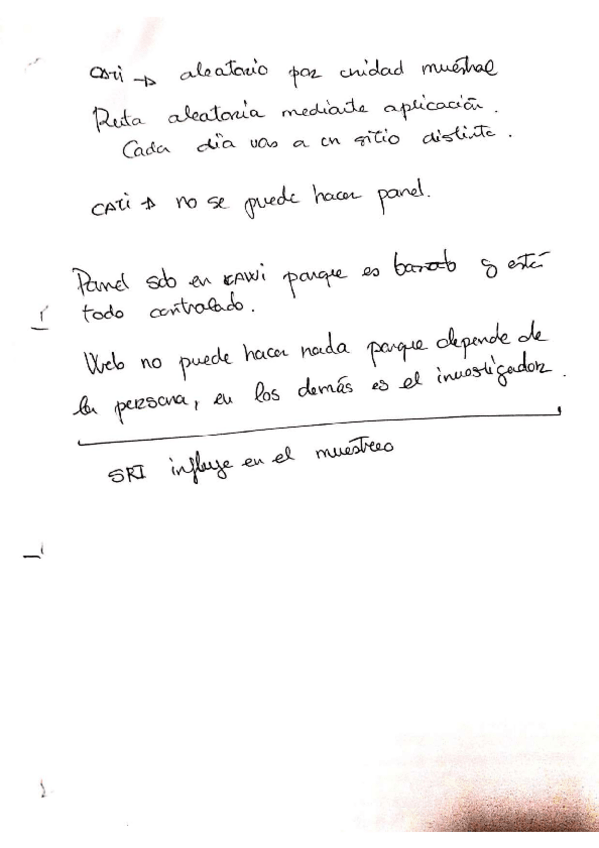 CATi → aleatorio por unidad muestral
Ruta aleatoria mediante aplicación.
Cada día vas a un sitio distinto.
CATi → no se puede hacer panel.
Panel solo en CAWi porque es barato y está
todo controlado.
Web no puede hacer nada porque depende de
la persona, en los demás es el investigador.
SRI influye en el muestreo